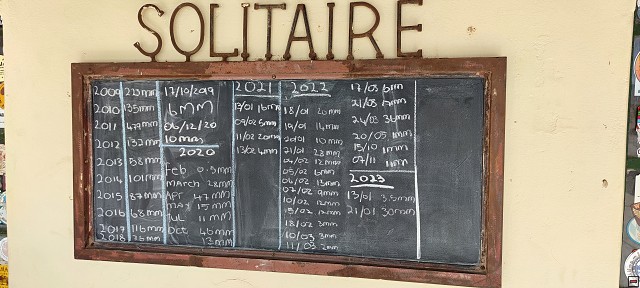 SOLITAIRE
2009 223mm
2010 135mm
2011 479mm
2012 132mm
2013 58mm
2014 101mm
2015 87mm
2016 68mm
2017 116mm
2018
17/10/2019
6MM
06/12/20
10mm
2020
Feb 0.5mm
MARCH 28mm
Apr 47mm
May 15mm
Jul 11mm
Oct
12mm
2021
17/01 16mm
09/02
11/02 20mm
13/02 4mm
2022
18/01 20mm
19/01 14mm
20/01 10mm
21/01 23mm
04/02 12mm
05/02 6mm
06/02 13mm
07/02 9mm
10/02 12mm
12mm
18/02 3mm
10/03 3mm
11/03 2mm
17/03
21/03
24/03 36mm
20/05 1mm
15/10 1mm
07/11 11mm
2023
13/01 3.5mm
21/01 30mm